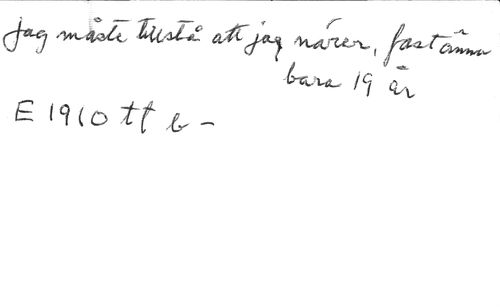 jag måste tillstå att jag närer, fast ännu
bara 19 år
E 1910 tt b -